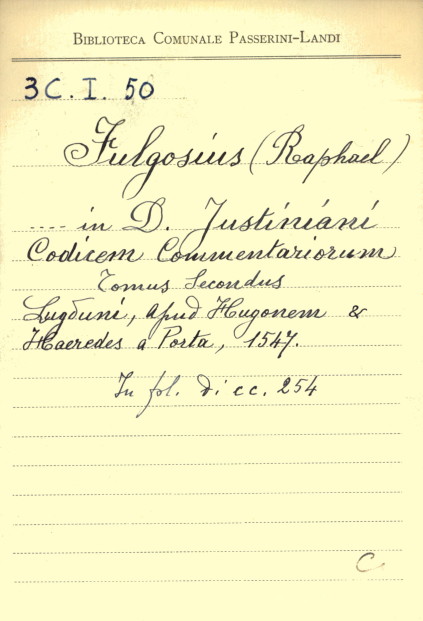 BIBLIOTECA COMUNALE PASSERINI-LANDI
3C. I. 50
Fulgosius (Raphael)
.... in D. Justiniani
Codicem Commentariorum
Tomus Secondus
Lugduni, apud Hugonem &
Haeredes a Porta, 1547.
In fol. di cc. 254
C